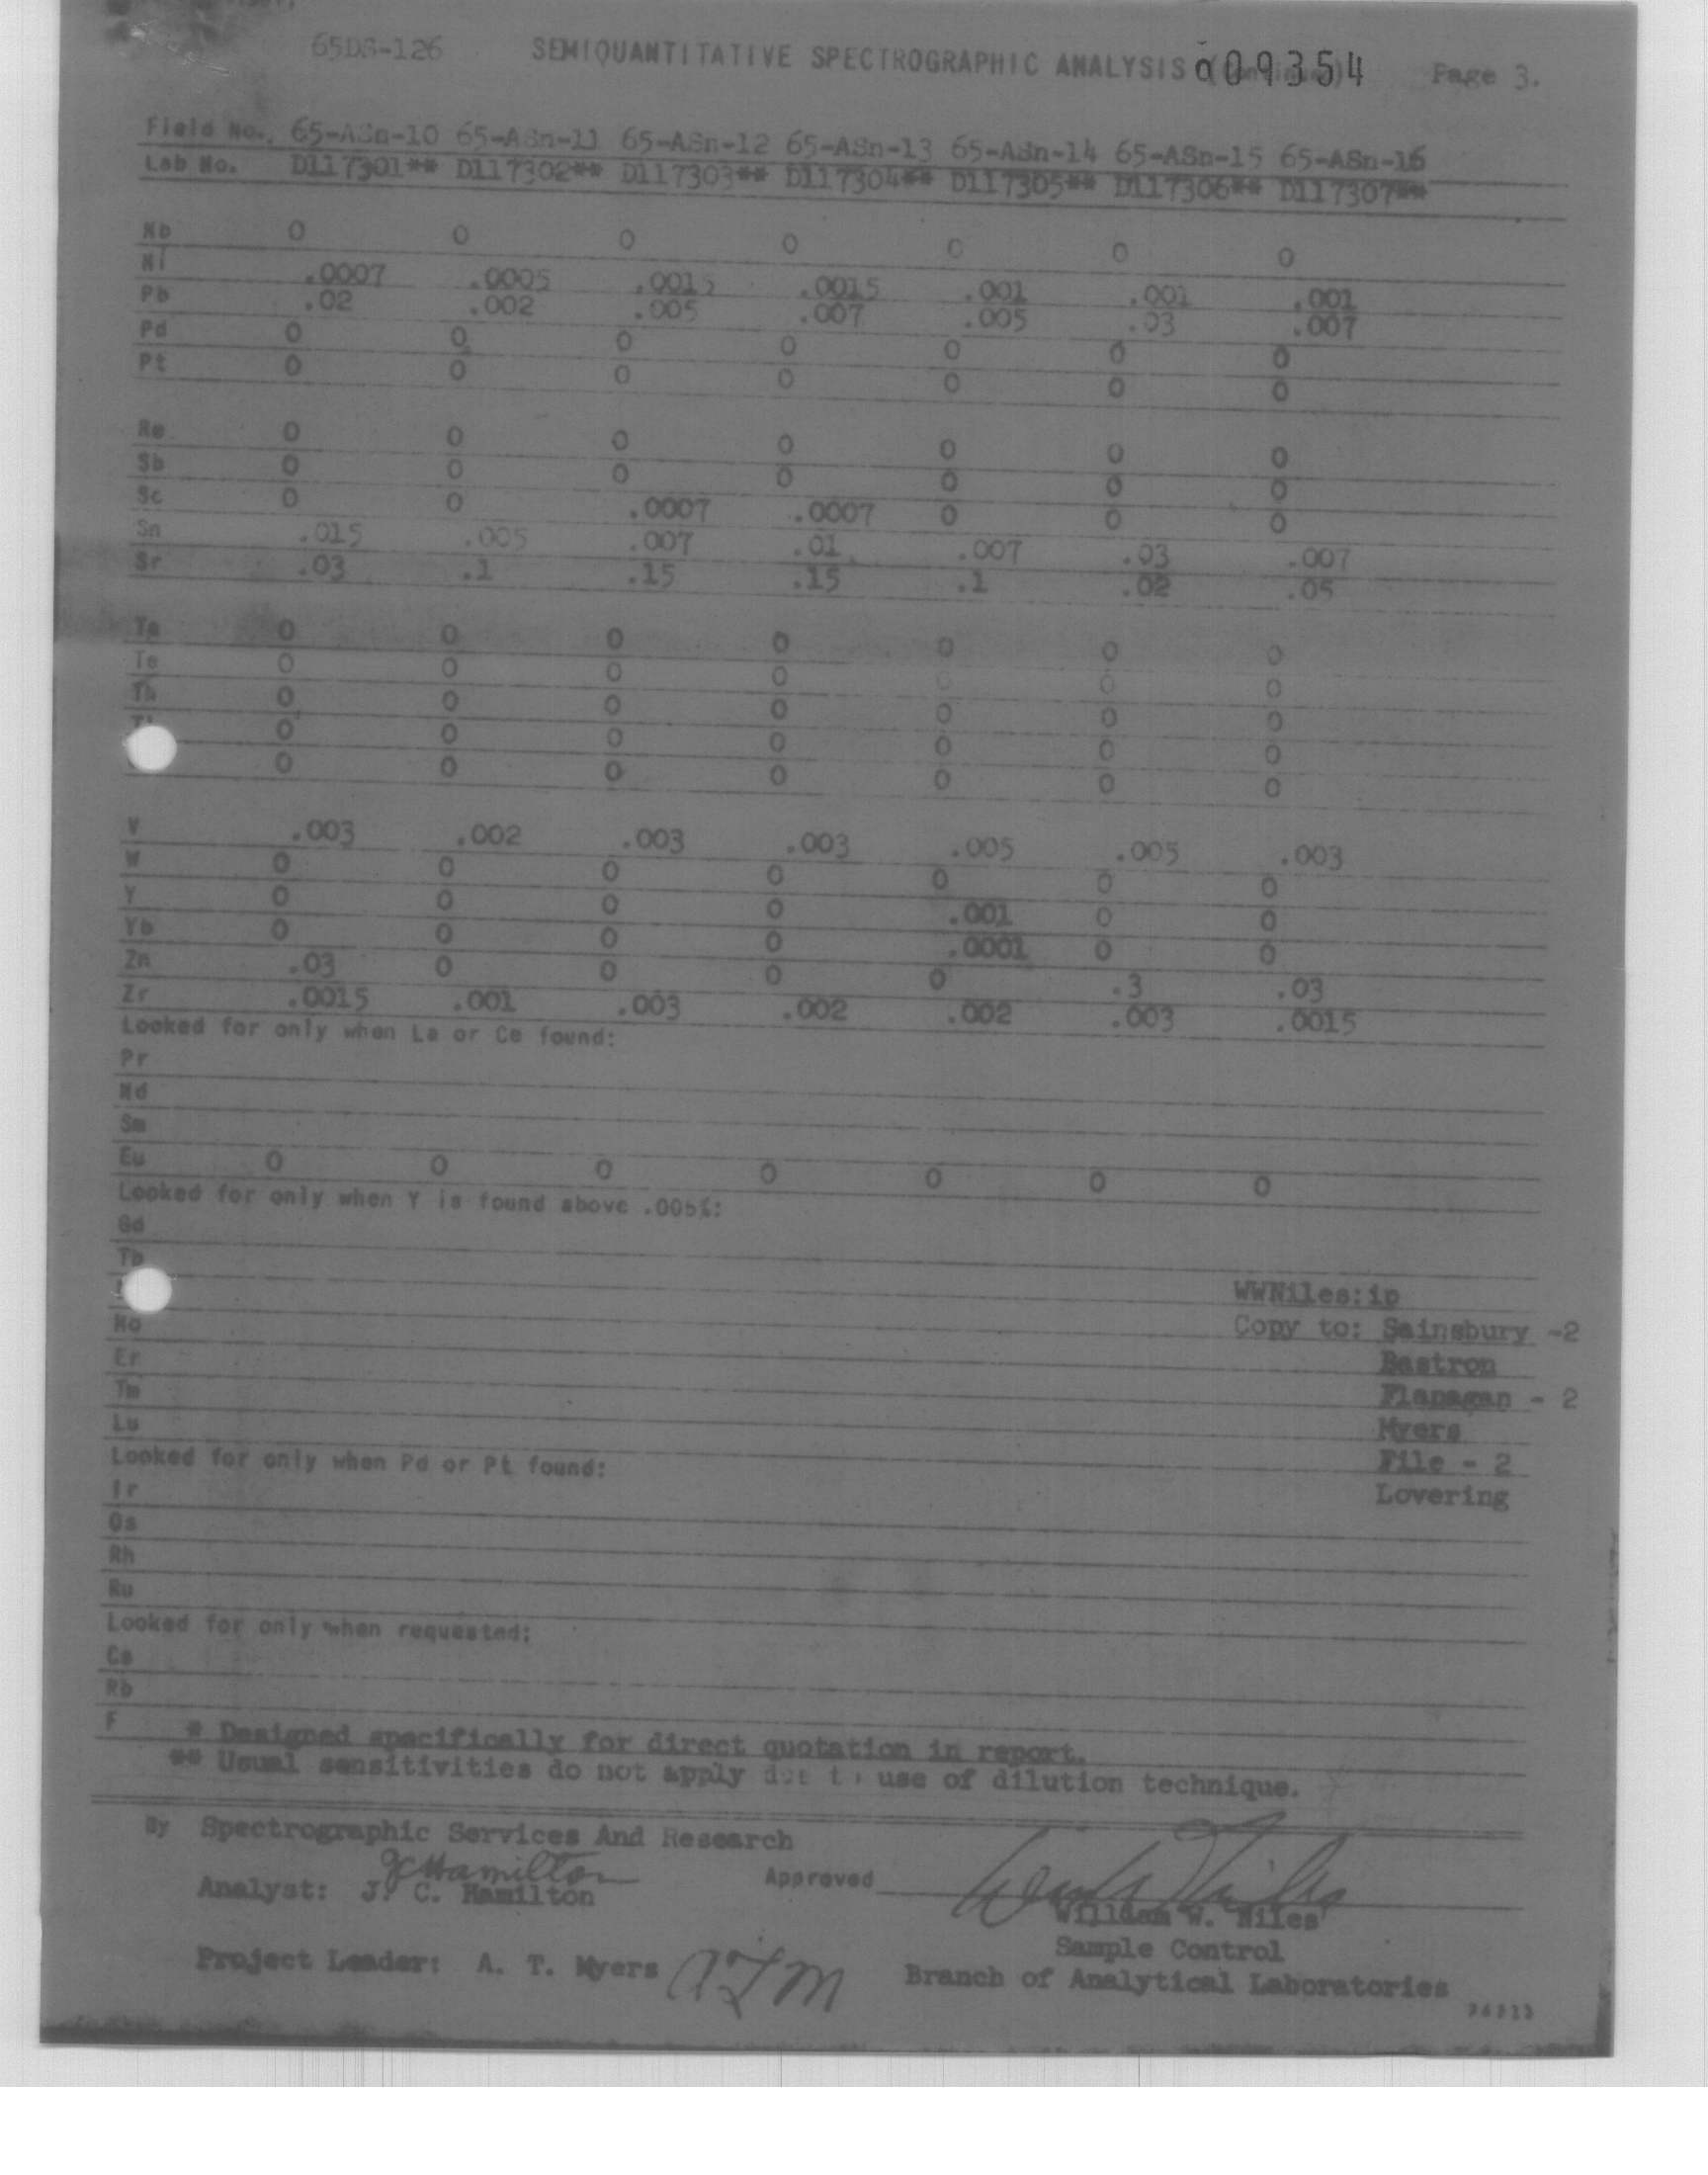 65DS-126 SEMIQUANTITATIVE SPECTROGRAPHIC ANALYSIS 009354 Page 3.
Field No. 65-ASn-10 65-ASn-11 65-ASn-12 65-ASn-13 65-ASn-14 65-ASn-15 65-ASn-16
Lab No. D117301** D117302** D117303** D117304** D117305** D117306** D117307**
Nb 0 0 0 0 0 0 0
Ni .0007 .0005 .0015 .0015 .001 .001 .001
Pb .02 .002 .005 .007 .005 .03 .007
Pd 0 0 0 0 0 0 0
Pt 0 0 0 0 0 0 0
Re 0 0 0 0 0 0 0
Sb 0 0 0 0 0 0 0
Sc 0 0 .0007 .0007 0 0 0
Sn .015 .005 .007 .01 .007 .03 .007
Sr .03 .1 .15 .15 .1 .02 .05
Ta 0 0 0 0 0 0 0
Te 0 0 0 0 0 0 0
Th 0 0 0 0 0 0 0
0 0 0 0 0 0 0
0 0 0 0 0 0 0
V .003 .002 .003 .003 .005 .005 .003
W 0 0 0 0 0 0 0
Y 0 0 0 0 .001 0 0
Yb 0 0 0 0 .0001 0 0
Zn .03 0 0 0 0 .3 .03
Zr .0015 .001 .003 .002 .002 .003 .0015
Looked for only when La or Ce found:
Pr
Nd
Sm
Eu 0 0 0 0 0 0 0
Looked for only when Y is found above .005%:
Gd
Tb
WWNiles:ip
Ho Copy to: Sainsbury -2
Er Bastron
Tm Flanagan - 2
Lu Myers
Looked for only when Pd or Pt found: File - 2
Ir Lovering
Os
Rh
Ru
Looked for only when requested:
Cs
Rb
F # Designed specifically for direct quotation in report.
** Usual sensitivities do not apply due to use of dilution technique.
By Spectrographic Services And Research
JCHamilton Approved
Analyst: J. C. Hamilton
William W. Niles
Sample Control
Project Leader: A. T. Myers ATM Branch of Analytical Laboratories